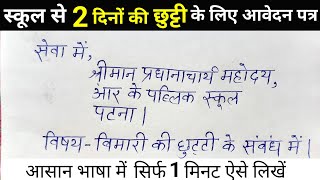 स्कूल से 2 दिनों की छुट्टी के लिए आवेदन पत्र
सेवा में,
श्रीमान प्रधानाचार्य महोदय,
आर के पब्लिक स्कूल
पटना।
विषय- विमारी की छुट्टी के संबंध में।
आसान भाषा में सिर्फ 1 मिनट ऐसे लिखें